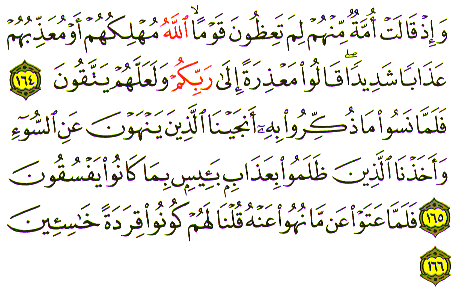 وَإِذۡ قَالَتۡ أُمَّةٞ مِّنۡهُمۡ لِمَ تَعِظُونَ قَوۡمًا ٱللَّهُ مُهۡلِكُهُمۡ أَوۡ مُعَذِّبُهُمۡ
عَذَابٗا شَدِيدٗاۖ قَالُواْ مَعۡذِرَةً إِلَىٰ رَبِّكُمۡ وَلَعَلَّهُمۡ يَتَّقُونَ ١٦٤
فَلَمَّا نَسُواْ مَا ذُكِّرُواْ بِهِۦٓ أَنجَيۡنَا ٱلَّذِينَ يَنۡهَوۡنَ عَنِ ٱلسُّوٓءِ
وَأَخَذۡنَا ٱلَّذِينَ ظَلَمُواْ بِعَذَابِۭ بَـِٔيسِۭ بِمَا كَانُواْ يَفۡسُقُونَ
١٦٥ فَلَمَّا عَتَوۡاْ عَن مَّا نُهُواْ عَنۡهُ قُلۡنَا لَهُمۡ كُونُواْ قِرَدَةً خَٰسِـِٔينَ
١٦٦